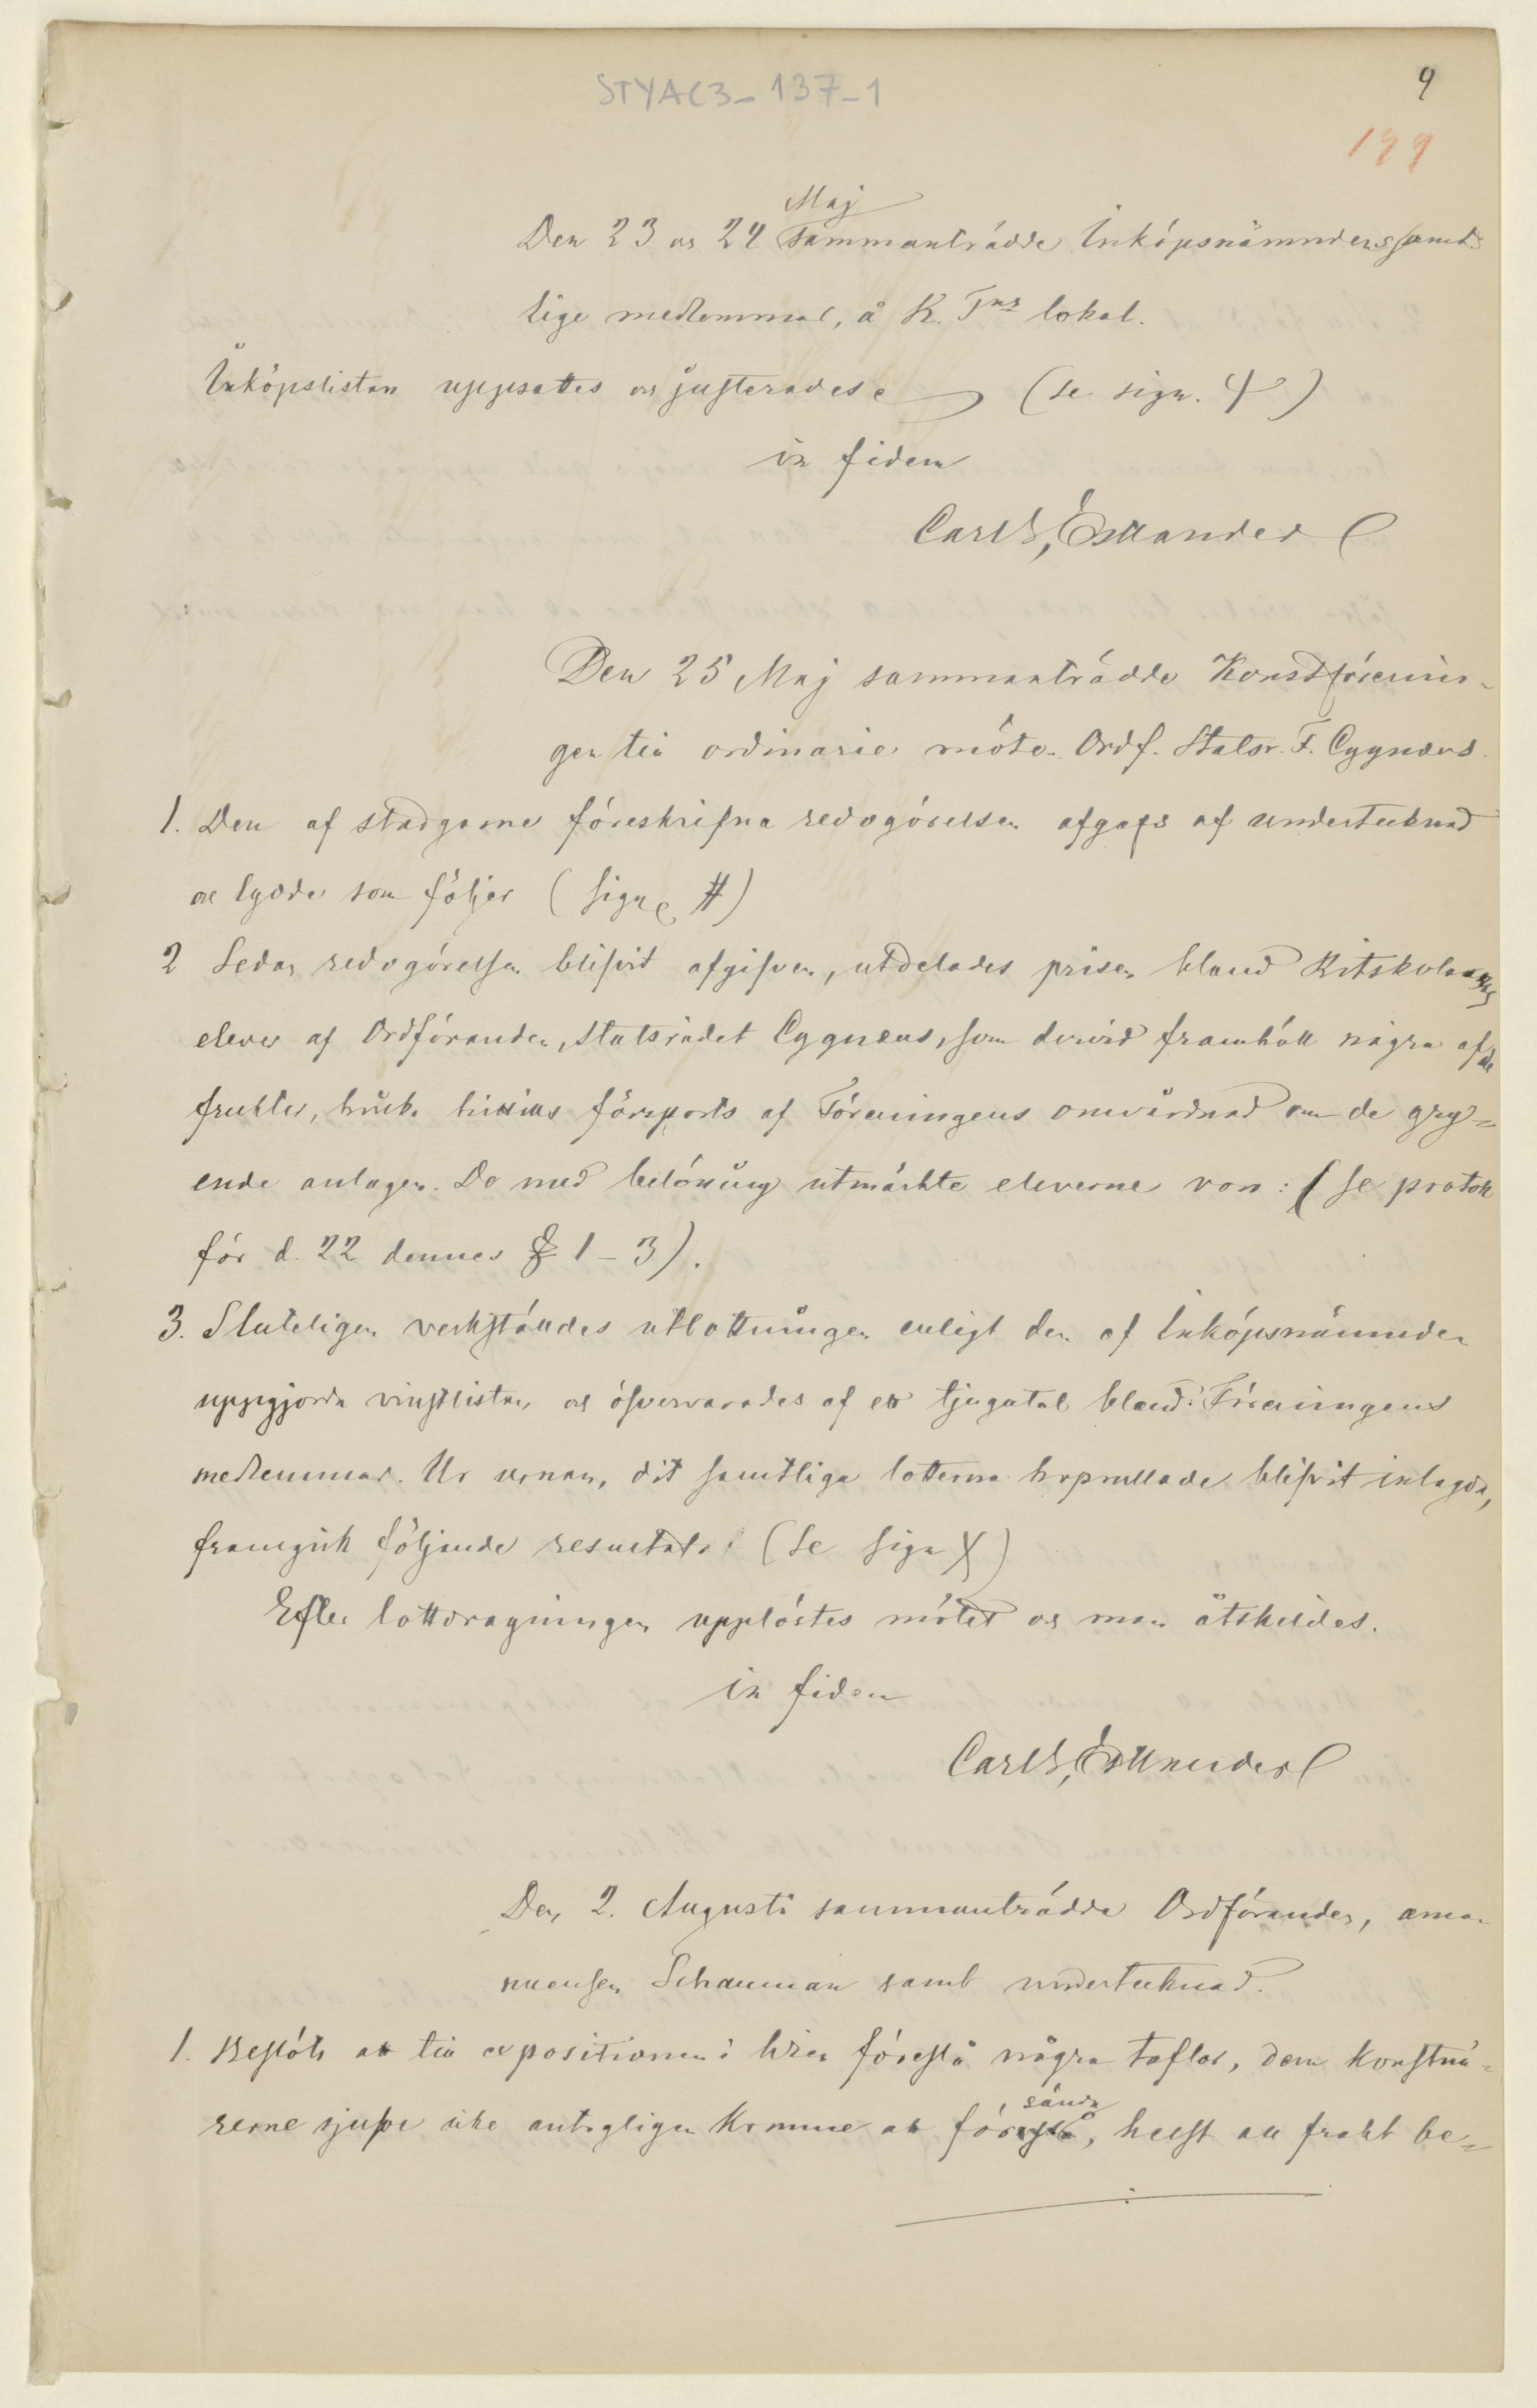 STYAC3-137-1
9
199
Maj
Den 23 os 24 sammanträdde Inköpsnämndens samt-
lige medlemmar, å K. Fns lokal.
Inköpslistan uppsattes os justerades (se sign. )
in fidem
Carl G. Estlander
Den 25 Maj sammanträdde Konstförenin-
gen till ordinarie möte. Ordf. Statsr. F. Cygnæus.
1. Den af stadgarne föreskrifna redogörelsen afgafs af undertecknad
os lydde som följer (sign #)
2 Sedan redogörelsen blifvit afgifven, utdelades prisen bland Ritskolans
elever af Ordföranden, Statsrådet Cygnæus, som dervid framhöll några af de
frukter, hvilka hittills försports af Föreningens omvårdnad om de gry-
ende anlagen. De med belöning utmärkte eleverne voro: (se protok
för d. 22 dennes § 1-3).
3. Sluteligen verkställdes utlottningen enligt den af Inköpsnämnden
uppgjorda vinstlistan, os öfvervarades af ett tjugutal bland Föreningens
medlemmar. Ur urnan, dit samtliga lotterna hoprullade blifvit inlagda,
framgick följande resultat: (Se sign X)
Efter lottdragningen upplöstes mötet os man åtskildes.
in fidem
Carl G. Estlander
Den 2. Augusti sammanträdde Ordföranden, ama-
nuensen Schauman samt undertecknad.
1. Beslöts att till expositionen i föreslå några taflor, dem konstnä-
rerne sjelfve icke antagligen komme att sända
föreslå, helst all frakt be-